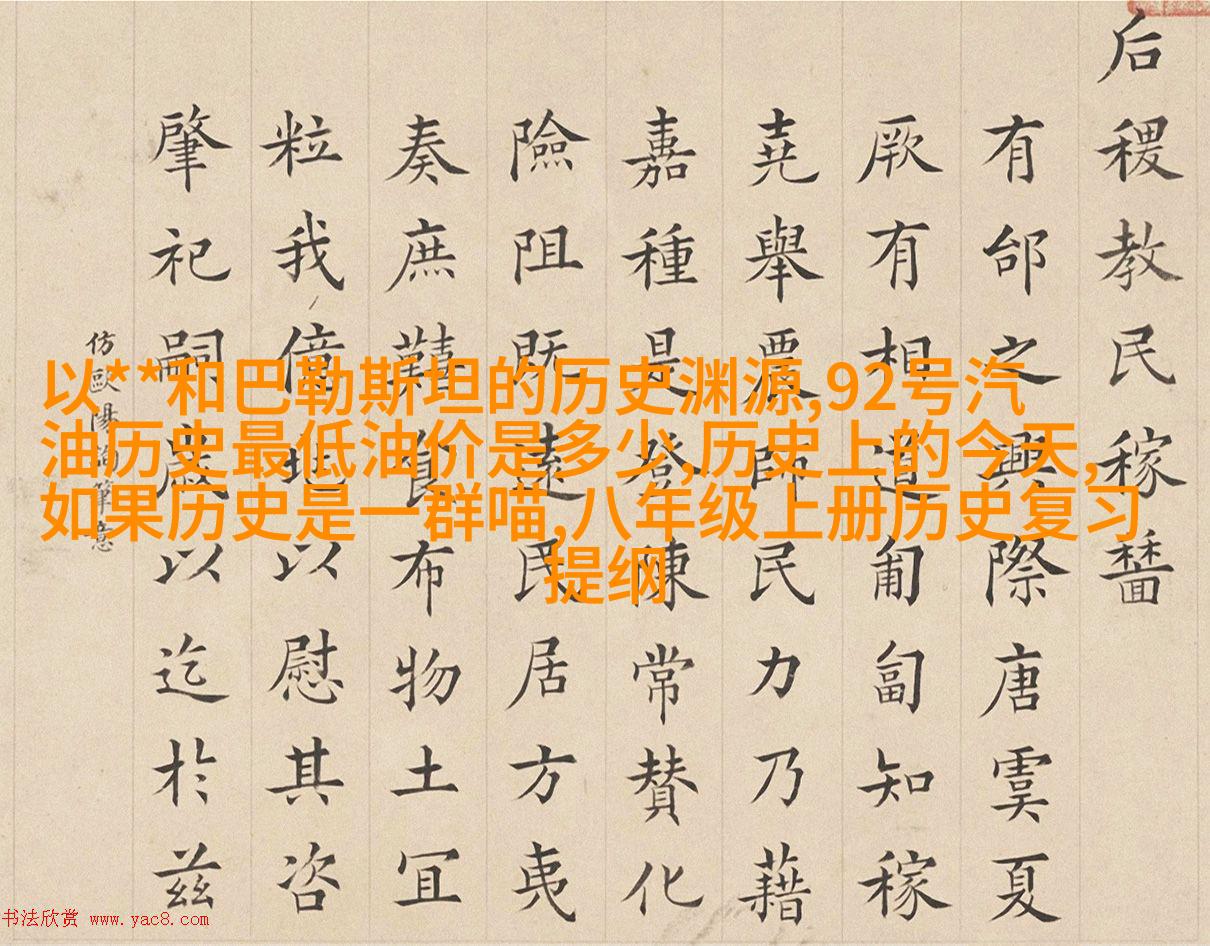 后稷教民稼穡
有邰之興際唐虞夏
厥有相道匍匐知稼
堯舉農師民力乃藉
嘉種是登陳常贊化
險阻既遠民居方夷
奏庶艱食布物土宜
粒我倍以慰其咨
肇祀嗣歲以迄於茲
仿歐陽詢筆意
以**和巴勒斯坦的历史渊源,92号汽
油历史最低油价是多少,历史上的今天,
如果历史是一群喵,八年级上册历史复习
提纲
书法欣赏 www.yac8.com